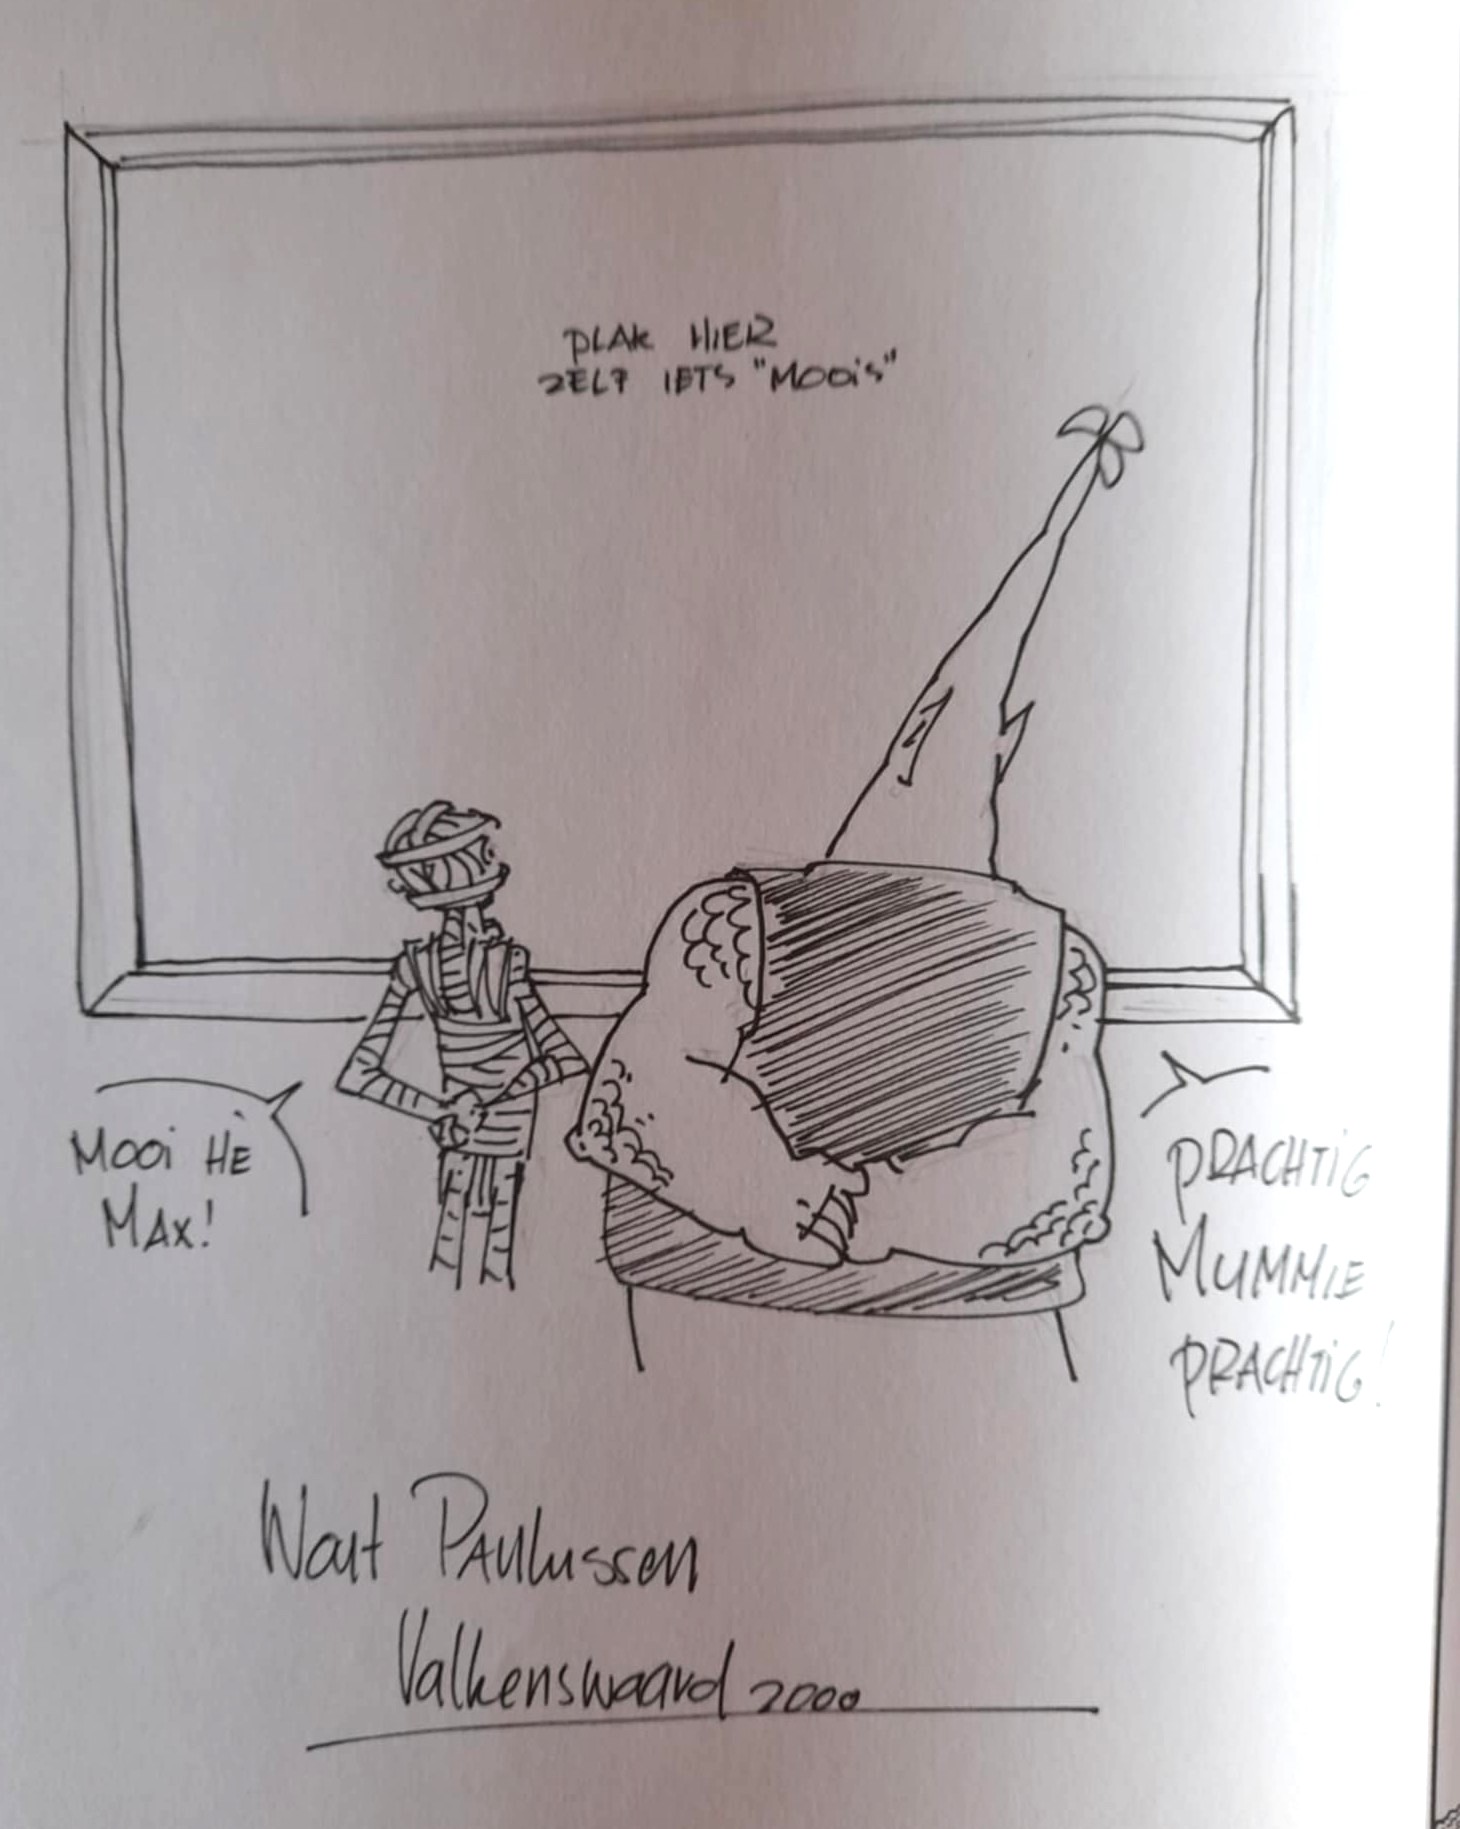 PLAK HIER
ZELF IETS "MOOiS"
MOOi HÈ
MAX!
PRACHTiG
MUMMIE
PRACHTiG!
Wout Paulussen
Valkenswaard 2000